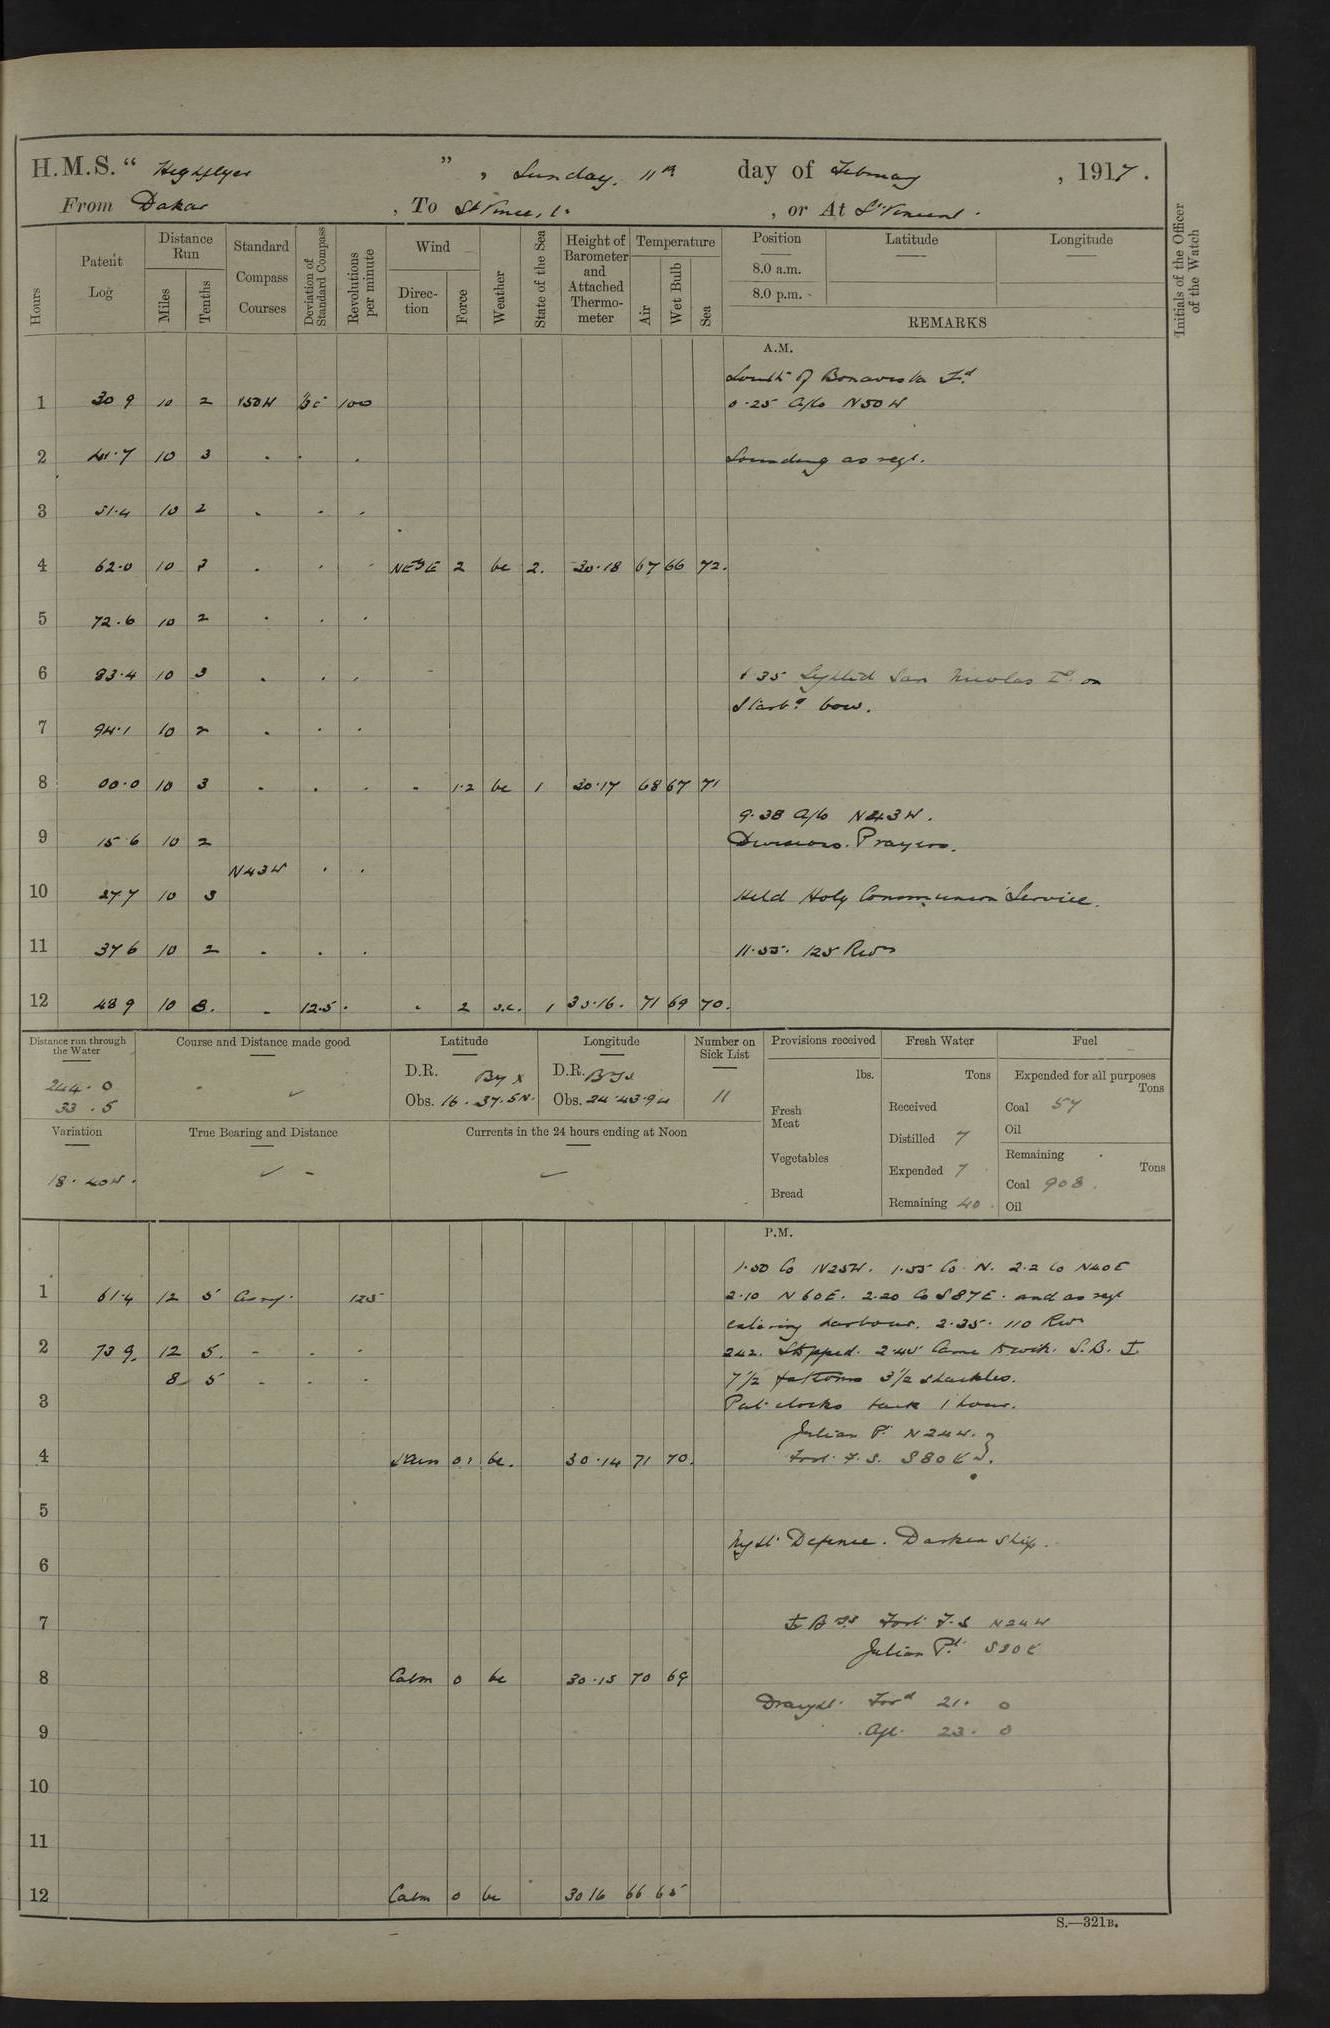 H.M.S. “ Highflyer ” , Sunday, 11th day of February , 1917 .
From Dakar , To St Vincent , or At St Vincent .
Hours Patent Log Distance Run Miles Tenths Standard Compass Courses Deviation of Standard Compass Revolutions per minute Wind Direction Force Weather State of the Sea Height of Barometer and Attached Thermometer Temperature Air Wet Bulb Sea Position 8.0 a.m. 8.0 p.m. Latitude Longitude
REMARKS
Initials of the Officer of the Watch
A.M.
South of Bonavista Id
1 30 9 10 2 100 0.25 A/Co N50W
2 41.7 10 3 . . . Sounding as reqd.
3 51.4 10 2 . . .
4 62.0 10 3 . . . NEBE 2 bc 2. 30.18 67 66 72.
5 72.6 10 2 . . .
6 83.4 10 3 . . . 6 35 Sighted San Nicolas Id on
Starbd bow.
7 94.1 10 2 . . .
8 00.0 10 3 . . . . 1.2 bc 1 30.17 68 67 71
9.38 A/Co N43W.
9 15.6 10 2 Divisions. Prayers.
N43W . .
10 27 7 10 3 Held Holy Communion Service.
11 37 6 10 2 . . . 11.55. 125 Revs
12 48 9 10 8. . 12.5 . . 2 1 30.16. 71 69 70.
Distance run through the Water
244.0
33.5
Course and Distance made good
Latitude
D.R. By x
Obs. 16.37.5N.
Longitude
D.R.
Obs. 24.43.9W
Number on Sick List
11
Provisions received
lbs.
Fresh Meat
Vegetables
Bread
Fresh Water
Tons
Received
Distilled 7
Expended 7
Remaining 40
Fuel
Expended for all purposes
Tons
Coal 57
Oil
Remaining
Tons
Coal 908.
Oil
Variation
18.40W.
True Bearing and Distance
Currents in the 24 hours ending at Noon
P.M.
1.50 Co N25W. 1.55 Co N. 2.2 Co N40E
1 61.4 12 5 As reqd. 125 2.10 N60E. 2.20 Co S87E. and as reqd
entering harbour. 2.35. 110 Revs
2 73 9. 12 5. - . . 242. Stopped. 2.45 Came to with S.B.
8 5 . . . 7 1/2 fathoms 3 1/2 shackles.
3 Put clocks back 1 hour.
Julian Pt N24W.
4 bc. 30.14 71 70. Fort F.S. S80E
5
Night Defence. Darken Ship.
6
7 Fort F.S N24W
Julian Pt. S80E
8 Calm 0 bc 30.15 70 69
Draught. Ford 21. 0
9 Aft. 23. 0
10
11
12 Calm 0 bc 30 16 66 65
S.—321B.